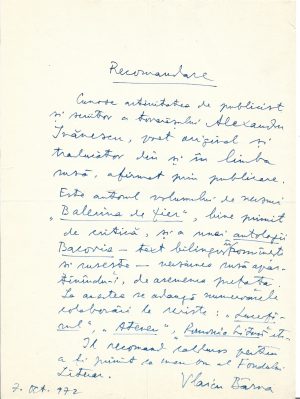 Recomandare
Cunosc activitatea de publicist
și scriitor a tovarășului Alexandru
Ivănescu, poet original și
traducător din și în limba
rusă, afirmat prin publicare.
Este autorul volumului de versuri
"Balerina de fier", bine primit
de critică, și a unei antologii
Bacovia — text bilingv românește
și rusește — versiunea rusă apar-
ținîndu-i, de asemenea prefața.
La acestea se adaugă numeroasele
colaborări la reviste: "Luceafă-
rul", "Ateneu", "România Literară" etc.
Îl recomand călduros pentru
a fi primit ca membru al Fondului
Literar.
7. Oct. 972
Vlaicu Bârna